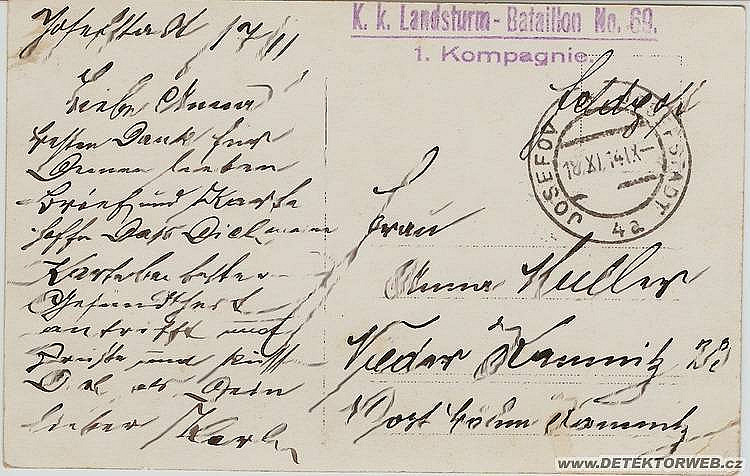 Josefstadt 17/11
Liebe Anna
besten Dank für
Deinen lieben
Brief und Karte
hoffe Dass Dich meine
Karte bei bester
Gesundheit
antrifft und
Grüße und Küsse
Dich als Dein
lieber Karl
K. k. Landsturm-Bataillon No. 69.
1. Kompagnie.
Feldpost
JOSEFOV JOSEFSTADT
18.XI.14 IX
4a
Frau
Anna Müller
Nieder Kamnitz
Post Böhm Kamnitz
www.DETEKTORWEB.cz